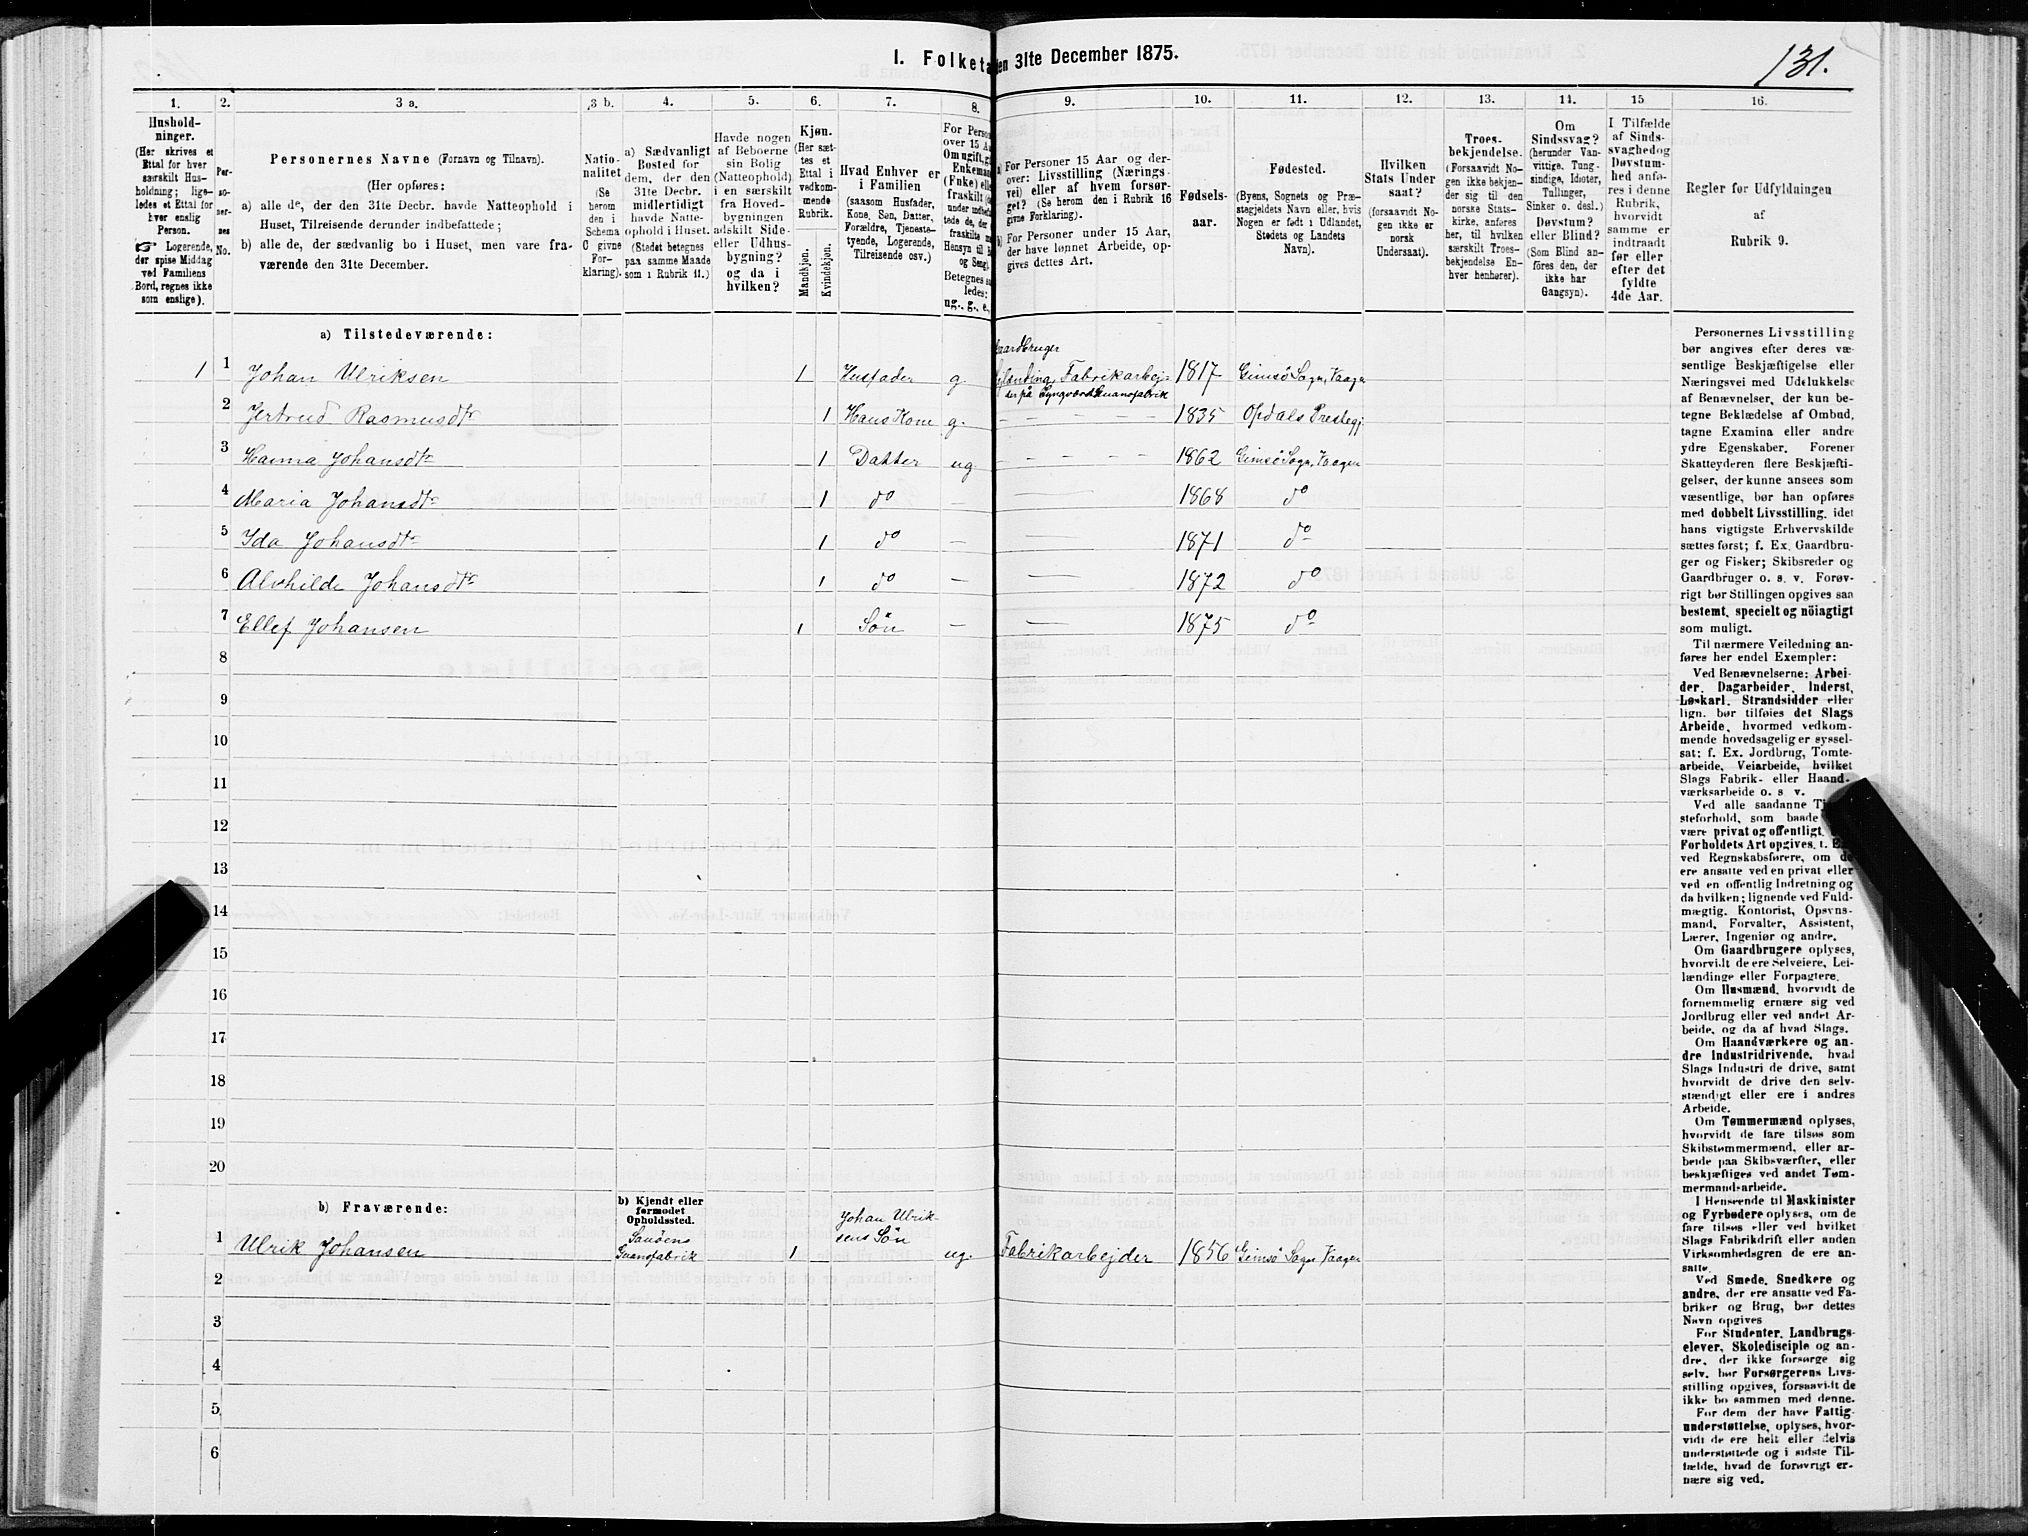 I. Folketa
den 31te December 1875.
131.
1.
2.
3 a.
3 b.
4.
5.
6.
7.
8.
9.
10.
11.
12.
13.
14.
15
16.
Hushold-
ninger.
(Her skrives et
Ettal for hver
særskilt Hus-
holdning; lige-
ledes et Ettal for
hver enslig
Person.
☞ Logerende,
der spise Middag
ved Familiens
Bord, regnes ikke
som enslige).
Per-
so-
ner-
nes
No.
Personernes Navne (Fornavn og Tilnavn).
(Her opføres:
a) alle de, der den 31te Decbr. havde Natteophold i
Huset, Tilreisende derunder indbefattede;
b) alle de, der sædvanlig bo i Huset, men vare fra-
værende den 31te December.
Natio-
nalitet
(Se
herom
den i
Schema
C givne
For-
klaring).
a) Sædvanligt
Bosted for
dem, der den
31te Decbr.
midlertidigt
havde Natte-
ophold i Huset.
(Stedet betegnes
paa samme Maade
som i Rubrik 11.)
Havde nogen
af Beboerne
sin Bolig
(Natteophold)
i en særskilt
fra Hoved-
bygningen
adskilt Side-
eller Udhus-
bygning?
og da i
hvilken?
Kjøn.
(Her sæt-
tes et
Ettal i
vedkom-
mende
Rubrik.
Mandkjøn.
Kvindekjøn.
Hvad Enhver er
i Familien
(saasom Husfader,
Kone, Søn, Datter,
Forældre, Tjeneste-
tyende, Logerende,
Tilreisende osv.)
For Perso
over 15 Aa
Om ugift, gi
Enkeman
(Enke) elle
fraskilt
under indbefat-
tede de, der
fraskilte m
Hensyn til B
og Seng).
Betegnes saa
ledes:
ug., g., e.,
a) For Personer 15 Aar og der-
over: Livsstilling (Nærings-
vei) eller af hvem forsør-
get? (Se herom den i Rubrik 16
givne Forklaring).
b) For Personer under 15 Aar,
der have lønnet Arbeide, op-
gives dettes Art.
Fødsels-
aar.
Fødested.
(Byens, Sognets og Præ-
stegjeldets Navn eller, hvis
Nogen er født i Udlandet,
Stedets og Landets
Navn).
Hvilken
Stats Under
saat?
(forsaavidt No-
gen ikke er
norsk
Undersaat).
Troes-
bekjendelse.
(Forsaavidt No-
gen ikke bekjen-
der sig til den
norske Stats-
kirke, anføres
her, til hvilken
særskilt Troes-
bekjendelse En-
hver henhører).
Om
Sindssvag?
(herunder Van-
vittige, Tung-
sindige, Idioter,
Tullinger,
Sinker o. desl.)
Døvstum?
eller Blind?
(Som Blind an-
føres den, der
ikke har
Gangsyn).
I Tilfælde
af Sinds-
svaghed og
Døvstum-
hed anfø-
res i denne
Rubrik,
hvorvidt
samme er
indtraadt
før eller
efter det
fyldte
4de Aar.
Regler for Udfyldningen
af
Rubrik 9.
a) Tilstedeværende:
1 1 Johan Ulriksen 1 Husfader g.
Gaardbruger
Fabrikarbej- 1817 Gimsö Sogn, Vaagen
2 Jertrud Rasmusdtr 1 Hans Kone g. 1835 Opdals Prestegj.
3 Hanna Johansdtr 1 Datter ug 1862 Gimsö Sogn, Vaagen
4 Maria Johansdtr 1 do — — 1868 do
5 Ida Johansdtr 1 do — — 1871 do
6 Alvhilde Johansdtr 1 do — — 1872 do
7 Ellef Johansen 1 Sön — — 1875 do
8
9
10
11
12
13
14
15
16
17
18
19
20
b) Fraværende:
b) Kjendt eller
formodet
Opholdssted.
Johan Ulrik-
sens Sön
1 Ulrik Johansen Guanofabrik 1 ug. Fabrikarbejder 1856 Gimsö Sogn Vaagen
2
3
4
5
6
Personernes Livsstilling
bør angives efter deres væ-
sentlige Beskjæftigelse eller
Næringsvei med Udelukkelse
af Benævnelser, der kun be-
tegne Beklædelse af Ombud,
tagne Examina eller andre
ydre Egenskaber. Forener
Skatteyderen flere Beskjæfti-
gelser, der kunne ansees som
væsentlige, bør han opføres
med dobbelt Livsstilling, idet
hans vigtigste Erhvervskilde
sættes først; f. Ex. Gaardbru-
ger og Fisker; Skibsreder og
Gaardbruger o. s. v. Forøv-
rigt bør Stillingen opgives saa
bestemt, specielt og nöiagtigt
som muligt.
Til nærmere Veiledning an-
føres her endel Exempler:
Ved Benævnelserne: Arbei-
der, Dagarbeider, Inderst,
Løskarl, Strandsidder eller
lign. bør tilføies det Slags
Arbeide, hvormed vedkom-
mende hovedsagelig er syssel-
sat; f. Ex. Jordbrug, Tomte-
arbeide, Veiarbeide, hvilket
Slags Fabrik- eller Haand-
værksarbeide o. s. v.
Ved alle saadanne Tj
steforhold, som baade
være privat og offentligt,
Forholdets Art opgives, t. E
ved Regnskabsførere, om de
ere ansatte ved en privat eller
ved en offentlig Indretning og
da hvilken; lignende ved Fuld-
mægtig, Kontorist, Opsyns-
mand, Forvalter, Assistent,
Lærer, Ingeniør og andre.
Om Gaardbrugere oplyses,
hvorvidt de ere Selveiere, Lei-
lændinge eller Forpagtere.
Om Husmænd, hvorvidt de
fornemmelig ernære sig ved
Jordbrug eller ved andet Ar-
beide, og da af hvad Slags.
Om Haandværkere og an-
dre Industridrivende, hvad
Slags Industri de drive, samt
hvorvidt de drive den selv-
stændigt eller ere i andres
Arbeide.
Om Tømmermænd oplyses,
hvorvidt de fare tilsøs som
Skibstømmermænd, eller ar-
beide paa Skibsværfter, eller
beskjæftiges ved andet Tøm-
mermandsarbeide.
I Henseende til Maskinister
og Fyrbødere oplyses, om de
fare tilsøs eller ved hvilket
Slags Fabrikdrift eller anden
Virksomhedsgren de ere an-
satte.
Ved Smede, Snedkere og
andre, der ere ansatte ved Fa-
briker og Brug, bør dettes
Navn opgives
For Studenter, Landbrugs-
elever, Skoledisciple og an-
dre, der ikke forsørge sig
selv, bør Forsørgerens Livs-
stilling opgives, forsaavidt de
ikke bo sammen med denne.
For dem, der have Fattig-
understøttelse, oplyses, hvor-
vidt de ere helt eller delvis
understøttede og i sidste Til-
fælde, hvad de forøvrigt er-
nære sig ved.